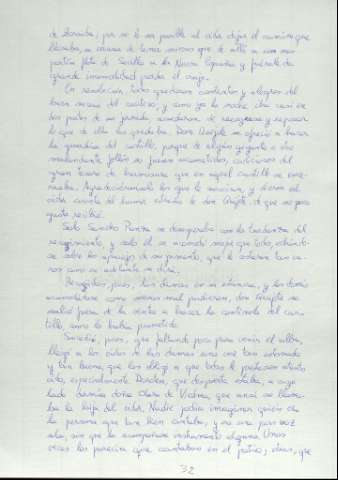 de Zoraida, por no le ser posible al oidor dejar el camino que
llevaba, a causa de tener nuevas que de allí a un mes
partía flota de Sevilla a la Nueva España y fuérale de
grande incomodidad perder el viaje.
En resolución, todos quedaron contentos y alegres del
buen suceso del cautivo, y como ya la noche iba casi en
dos partes de su jornada, acordaron de recogerse y reposar
lo que de ella les quedaba. Don Quijote se ofreció a hacer
la guardia del castillo, porque de algún gigante u otro
malandante follón no fuesen acometidos, codiciosos del
gran tesoro de hermosura que en aquel castillo se ence-
rraba. Agradeciéronselo los que le conocían, y dieron al
oidor cuenta del humor extraño de don Quijote, de que no poco
gusto recibió.
Solo Sancho Panza se desesperaba con la tardanza del
recogimiento, y solo él se acomodó mejor que todos, echándo-
se sobre los aparejos de su jumento, que le costaron tan ca-
ros como se adelante se dirá.
Recogidas, pues, las damas en su estancia, y los demás
acomodádose como menos mal pudieron, don Quijote se
salió fuera de la venta a hacer la centinela del cas-
tillo, como lo había prometido.
Sucedió, pues, que faltando poco para venir el alba,
llegó a los oídos de las damas una voz tan entonada
y tan buena, que les obligó a que todas le prestasen atento
oído, especialmente Dorotea, que despierta estaba, a cuyo
lado dormía doña Clara de Viedma, que ansí se llama-
ba la hija del oidor. Nadie podía imaginar quién era
la persona que tan bien cantaba, y era una voz
sola, sin que la acompañase instrumento alguno. Unas
veces les parecía que cantaban en el patio; otras, que
32